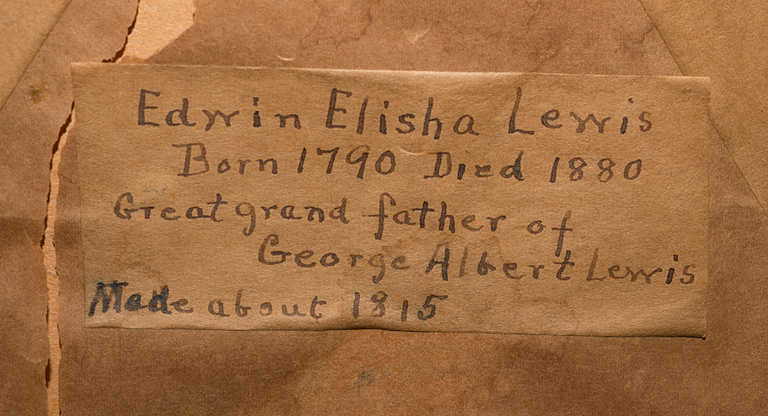 Edwin Elisha Lewis
Born 1790 Died 1880
Great grand father of
George Albert Lewis
Made about 1815